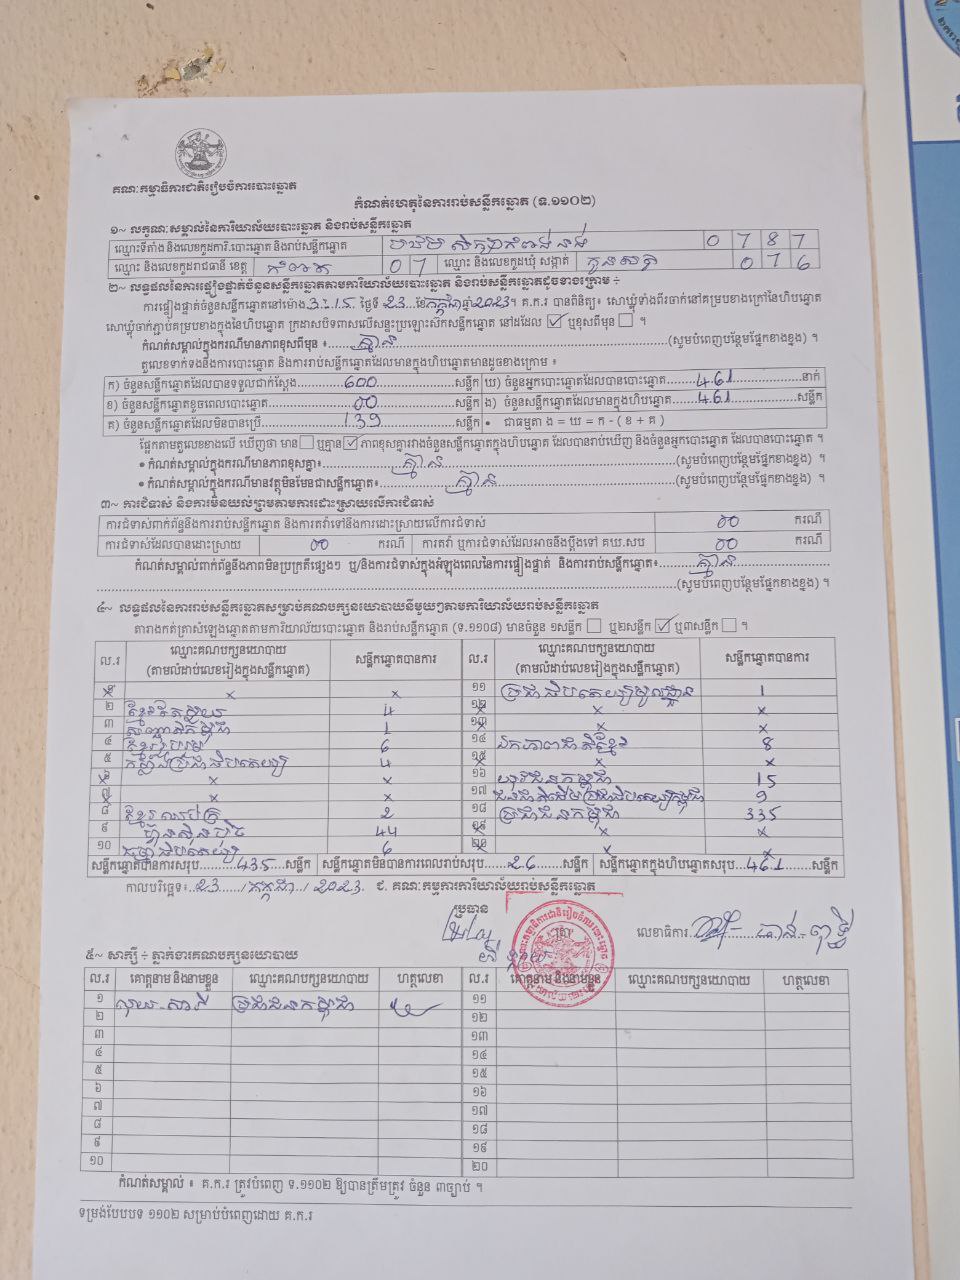 គណៈកម្មាធិការជាតិរៀបចំការបោះឆ្នោត
កំណត់ហេតុនៃការរាប់សន្លឹកឆ្នោត (ទ.១១០២)
១~ លក្ខណៈសម្គាល់នៃការិយាល័យបោះឆ្នោត និងរាប់សន្លឹកឆ្នោត
ឈ្មោះទីតាំង និងលេខកូដការិ.បោះឆ្នោត និងរាប់សន្លឹកឆ្នោត 0 7 8 7
ឈ្មោះ និងលេខកូដរាជធានី ខេត្ត កំពត 0 7 ឈ្មោះ និងលេខកូដឃុំ សង្កាត់ កូនសត្វ 0 7 6
២~ លទ្ធផលនៃការផ្ទៀងផ្ទាត់ចំនួនសន្លឹកឆ្នោតតាមការិយាល័យបោះឆ្នោត និងរាប់សន្លឹកឆ្នោតដូចខាងក្រោម ÷
ការផ្ទៀងផ្ទាត់ចំនួនសន្លឹកឆ្នោតនៅម៉ោង 3:15 ថ្ងៃទី 23 ខែ កក្កដា ឆ្នាំ 2023។ គ.ក.រ បានពិនិត្យ៖ សោឃ្លុំទាំងពីរចាក់នៅគម្របខាងក្រៅនៃហិបឆ្នោត
សោឃ្លុំចាក់ភ្ជាប់គម្របខាងក្នុងនៃហិបឆ្នោត ក្រដាសបិទពាសលើសន្ទះប្រឡោះស៊កសន្លឹកឆ្នោត នៅដដែល ☑ ឬខុសពីមុន ☐ ។
កំណត់សម្គាល់ក្នុងករណីមានភាពខុសពីមុន ៖ គ្មាន (សូមបំពេញបន្ថែមផ្នែកខាងខ្នង) ។
តួលេខទាក់ទងនឹងការបោះឆ្នោត និងការរាប់សន្លឹកឆ្នោតដែលមានក្នុងហិបឆ្នោតមានដូចខាងក្រោម ៖
ក) ចំនួនសន្លឹកឆ្នោតដែលបានទទួលជាក់ស្តែង 600 សន្លឹក ឃ) ចំនួនអ្នកបោះឆ្នោតដែលបានបោះឆ្នោត 461 នាក់
ខ) ចំនួនសន្លឹកឆ្នោតខូចពេលបោះឆ្នោត 00 សន្លឹក ង) ចំនួនសន្លឹកឆ្នោតដែលមានក្នុងហិបឆ្នោត 461 សន្លឹក
គ) ចំនួនសន្លឹកឆ្នោតដែលមិនបានប្រើ 139 សន្លឹក • ជាធម្មតា ង = ឃ = ក - ( ខ + គ )
ផ្អែកតាមតួលេខខាងលើ ឃើញថា មាន ☐ ឬគ្មាន ☑ ភាពខុសគ្នារវាងចំនួនសន្លឹកឆ្នោតក្នុងហិបឆ្នោត ដែលបានរាប់ឃើញ និងចំនួនអ្នកបោះឆ្នោត ដែលបានបោះឆ្នោត ។
• កំណត់សម្គាល់ក្នុងករណីមានភាពខុសគ្នា៖ គ្មាន (សូមបំពេញបន្ថែមផ្នែកខាងខ្នង) ។
• កំណត់សម្គាល់ក្នុងករណីមានវត្ថុមិនមែនជាសន្លឹកឆ្នោត៖ គ្មាន (សូមបំពេញបន្ថែមផ្នែកខាងខ្នង) ។
៣~ ការជំទាស់ និងការមិនយល់ព្រមតាមការដោះស្រាយលើការជំទាស់
ការជំទាស់ពាក់ព័ន្ធនឹងការរាប់សន្លឹកឆ្នោត និងការតវ៉ាទៅនឹងការដោះស្រាយលើការជំទាស់ 00 ករណី
ការជំទាស់ដែលបានដោះស្រាយ 00 ករណី ការតវ៉ា ឬការជំទាស់ដែលអាចនឹងប្តឹងទៅ គឃ.សប 00 ករណី
កំណត់សម្គាល់ពាក់ព័ន្ធនឹងភាពមិនប្រក្រតីផ្សេងៗ ឬ/និងការជំទាស់ក្នុងអំឡុងពេលនៃការផ្ទៀងផ្ទាត់ និងការរាប់សន្លឹកឆ្នោត៖ គ្មាន
(សូមបំពេញបន្ថែមផ្នែកខាងខ្នង) ។
៤~ លទ្ធផលនៃការរាប់សន្លឹកឆ្នោតសម្រាប់គណបក្សនយោបាយនីមួយៗតាមការិយាល័យរាប់សន្លឹកឆ្នោត
តារាងកត់ត្រាសំឡេងឆ្នោតតាមការិយាល័យបោះឆ្នោត និងរាប់សន្លឹកឆ្នោត (ទ.១១០៨) មានចំនួន ១សន្លឹក ☐ ឬ២សន្លឹក ☑ ឬ៣សន្លឹក ☐ ។
ល.រ ឈ្មោះគណបក្សនយោបាយ (តាមលំដាប់លេខរៀងក្នុងសន្លឹកឆ្នោត) សន្លឹកឆ្នោតបានការ ល.រ ឈ្មោះគណបក្សនយោបាយ (តាមលំដាប់លេខរៀងក្នុងសន្លឹកឆ្នោត) សន្លឹកឆ្នោតបានការ
១ x x ១១ ប្រជាធិបតេយ្យមូលដ្ឋាន 1
២ ខ្មែរតែមួយ 4 ១២ x x
៣ សញ្ជាតិកម្ពុជា 1 ១៣ x x
៤ ខ្មែររួបរួម 6 ១៤ ឯកភាពជាតិខ្មែរ 8
៥ កម្លាំងប្រជាធិបតេយ្យ 4 ១៥ x x
៦ x x ១៦ យុវជនកម្ពុជា 15
៧ x x ១៧ ជនជាតិដើមប្រជាធិបតេយ្យកម្ពុជា 9
៨ ខ្មែរឈប់ក្រ 2 ១៨ ប្រជាជនកម្ពុជា 335
៩ ហ៊្វុនស៊ិនប៉ិច 44 ១៩ x x
១០ ឃ្មុំប្រជាធិបតេយ្យ 6 ២០ x x
សន្លឹកឆ្នោតបានការសរុប 435 សន្លឹក សន្លឹកឆ្នោតមិនបានការពេលរាប់សរុប 26 សន្លឹក សន្លឹកឆ្នោតក្នុងហិបឆ្នោតសរុប 461 សន្លឹក
កាលបរិច្ឆេទ៖ 23 / កក្កដា / 2023. ជ. គណៈកម្មការការិយាល័យរាប់សន្លឹកឆ្នោត
ប្រធាន
លេខាធិការ
៥~ សាក្សី ÷ ភ្នាក់ងារគណបក្សនយោបាយ
ល.រ គោត្តនាម និងនាមខ្លួន ឈ្មោះគណបក្សនយោបាយ ហត្ថលេខា ល.រ គោត្តនាម និងនាមខ្លួន ឈ្មោះគណបក្សនយោបាយ ហត្ថលេខា
១ ប្រជាជនកម្ពុជា ១១
២ ១២
៣ ១៣
៤ ១៤
៥ ១៥
៦ ១៦
៧ ១៧
៨ ១៨
៩ ១៩
១០ ២០
កំណត់សម្គាល់ ៖ គ.ក.រ ត្រូវបំពេញ ទ.១១០២ ឱ្យបានត្រឹមត្រូវ ចំនួន ៣ច្បាប់ ។
ទម្រង់បែបបទ ១១០២ សម្រាប់បំពេញដោយ គ.ក.រ